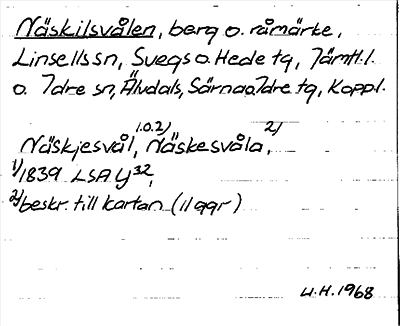 Näskilsvålen, berg o. råmärke,
Linsells sn, Svegs o. Hede tg, Jämtl. l.
o. Idre sn, Älvdals, Särna o. Idre tg, Koppl.
Näskjesvål, 1.o.2) Näskesvåla, 2)
1) 1839 LSA Y32,
2) beskr. till kartan (11 ggr)
L.H. 1968